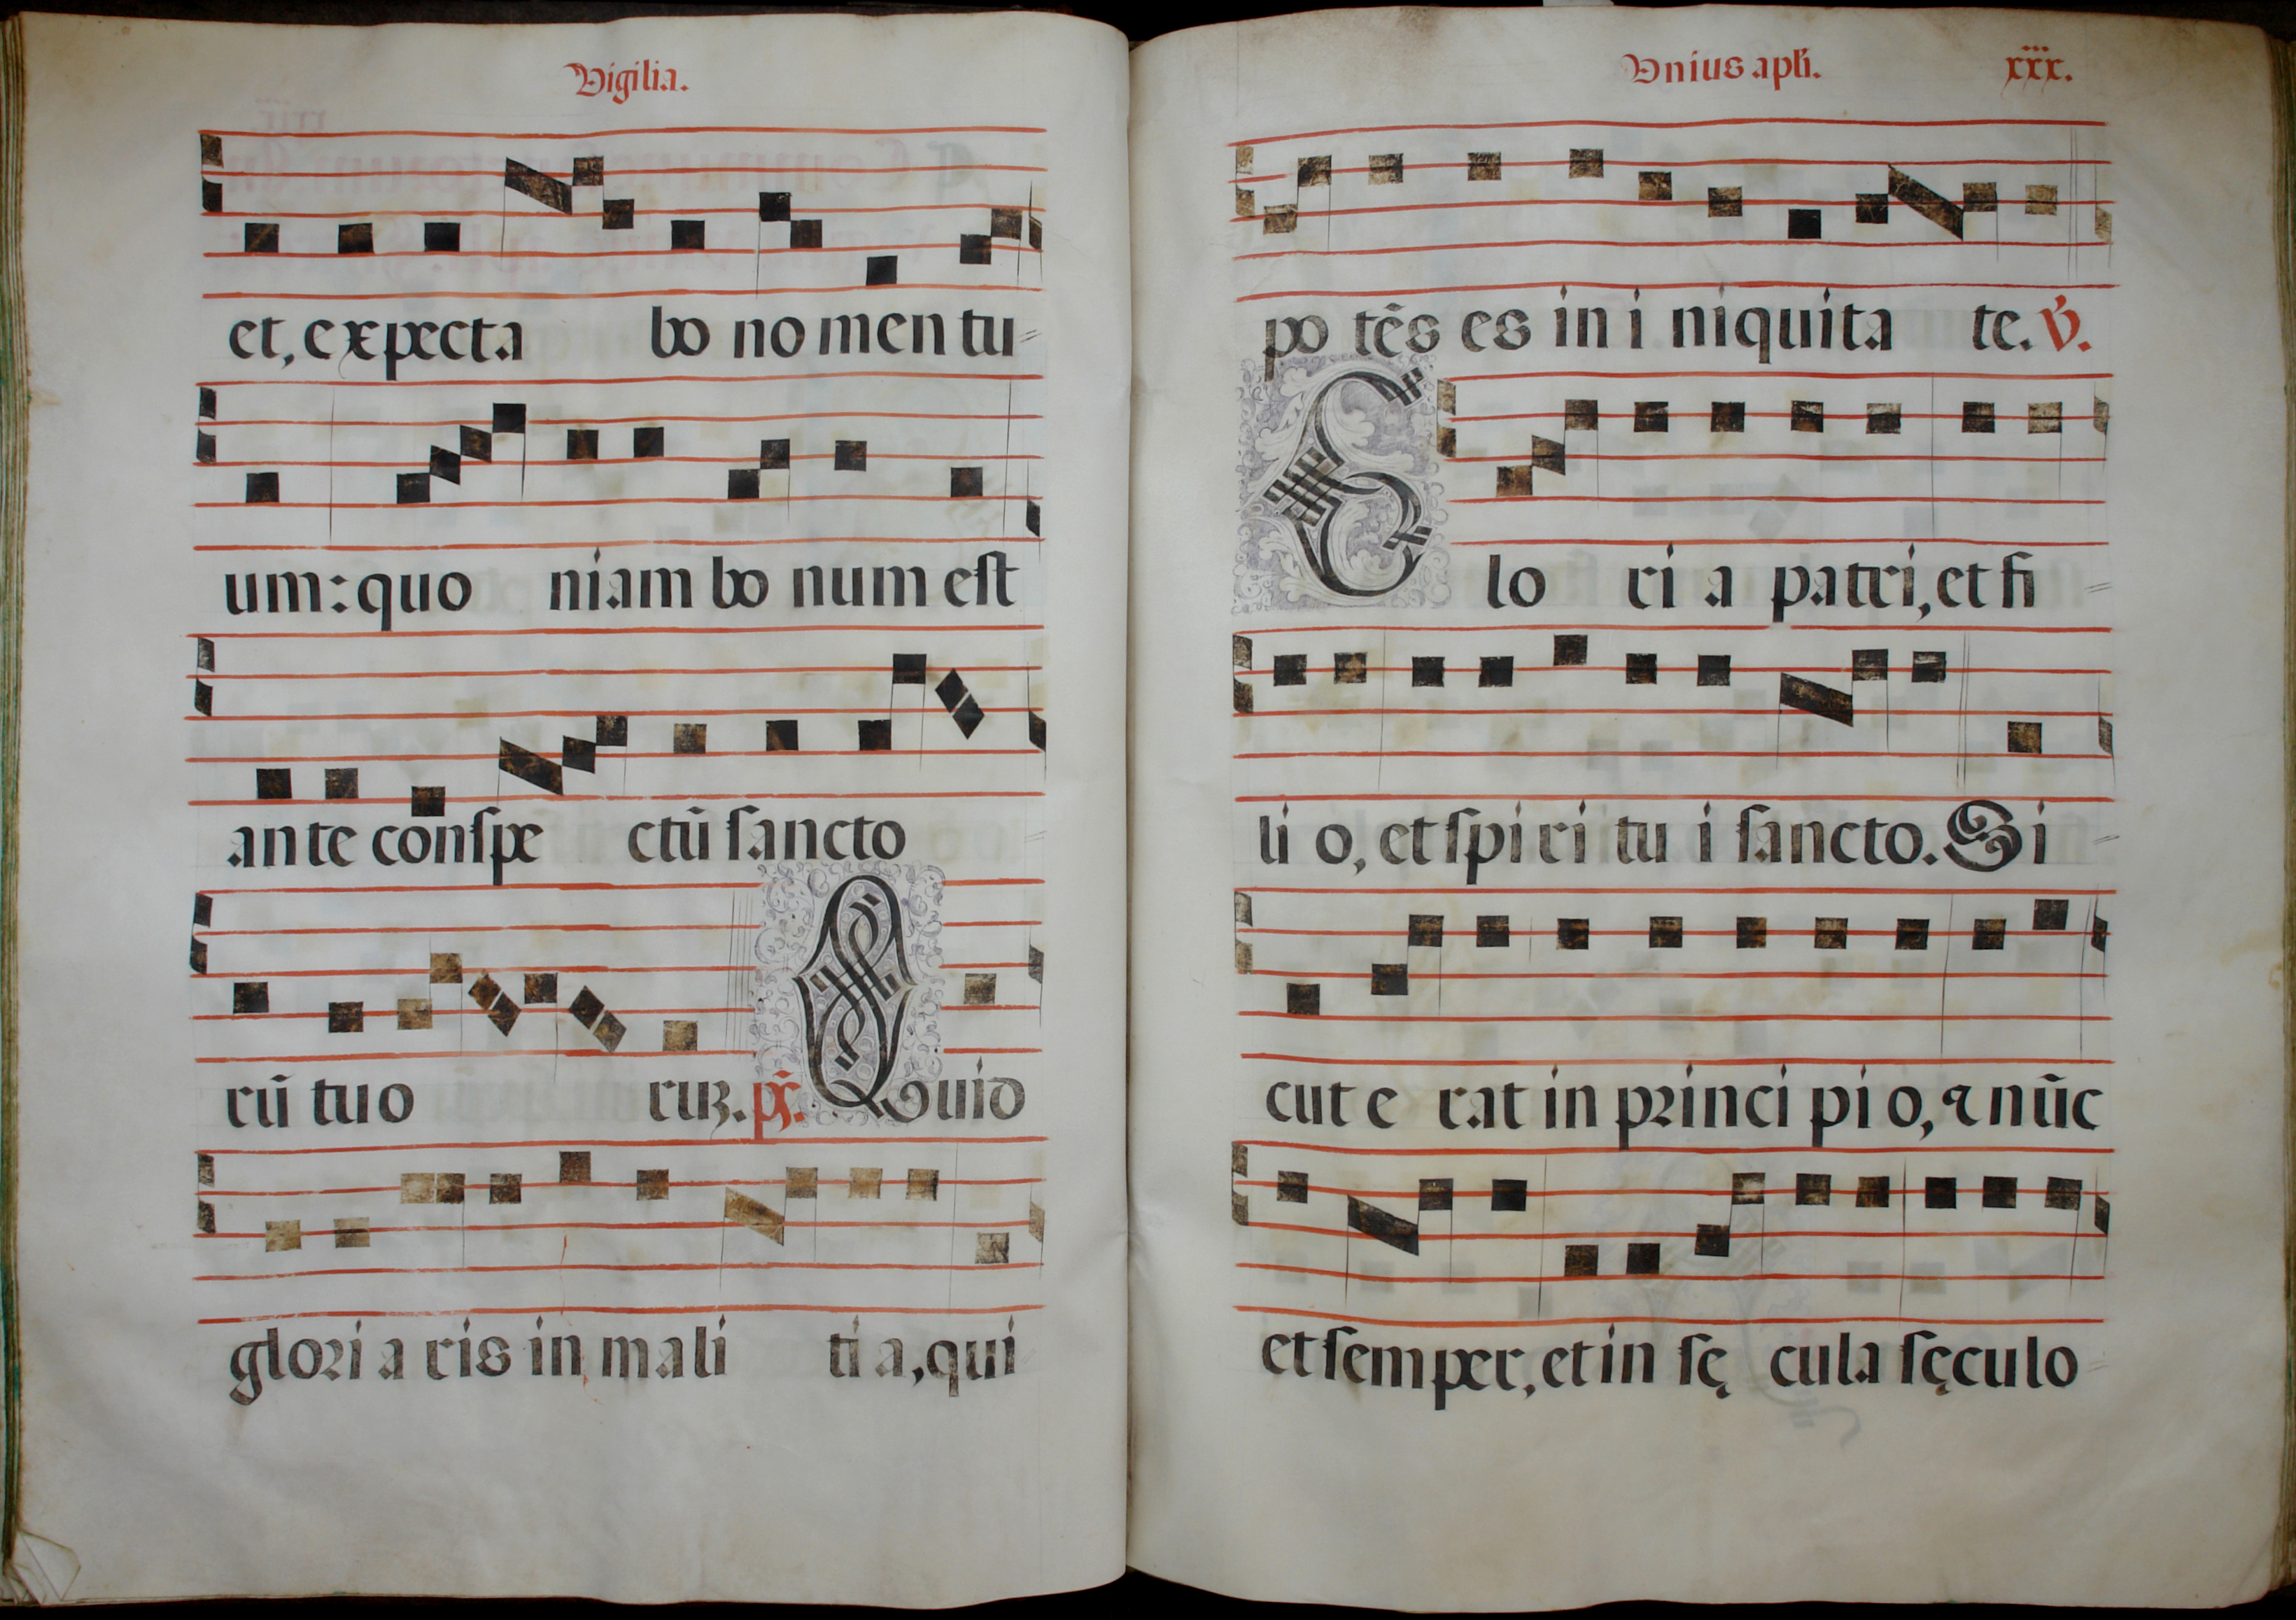 Vigilia.
et, expecta bo no men tu=
um: quo niam bo num est
an te conspe ctū sancto
rū tuo ruꝫ. ps̄. Quid
glori a ris in mali ti a, qui
Vnius apl̄i. xxx.
po tēs es in i niquita te. V̄.
Glo ri a patri, et fi=
li o, et spi ri tu i sancto. Si=
cut e rat in princi pi o, ⁊ nūc
et semper, et in sę cula sęculo=